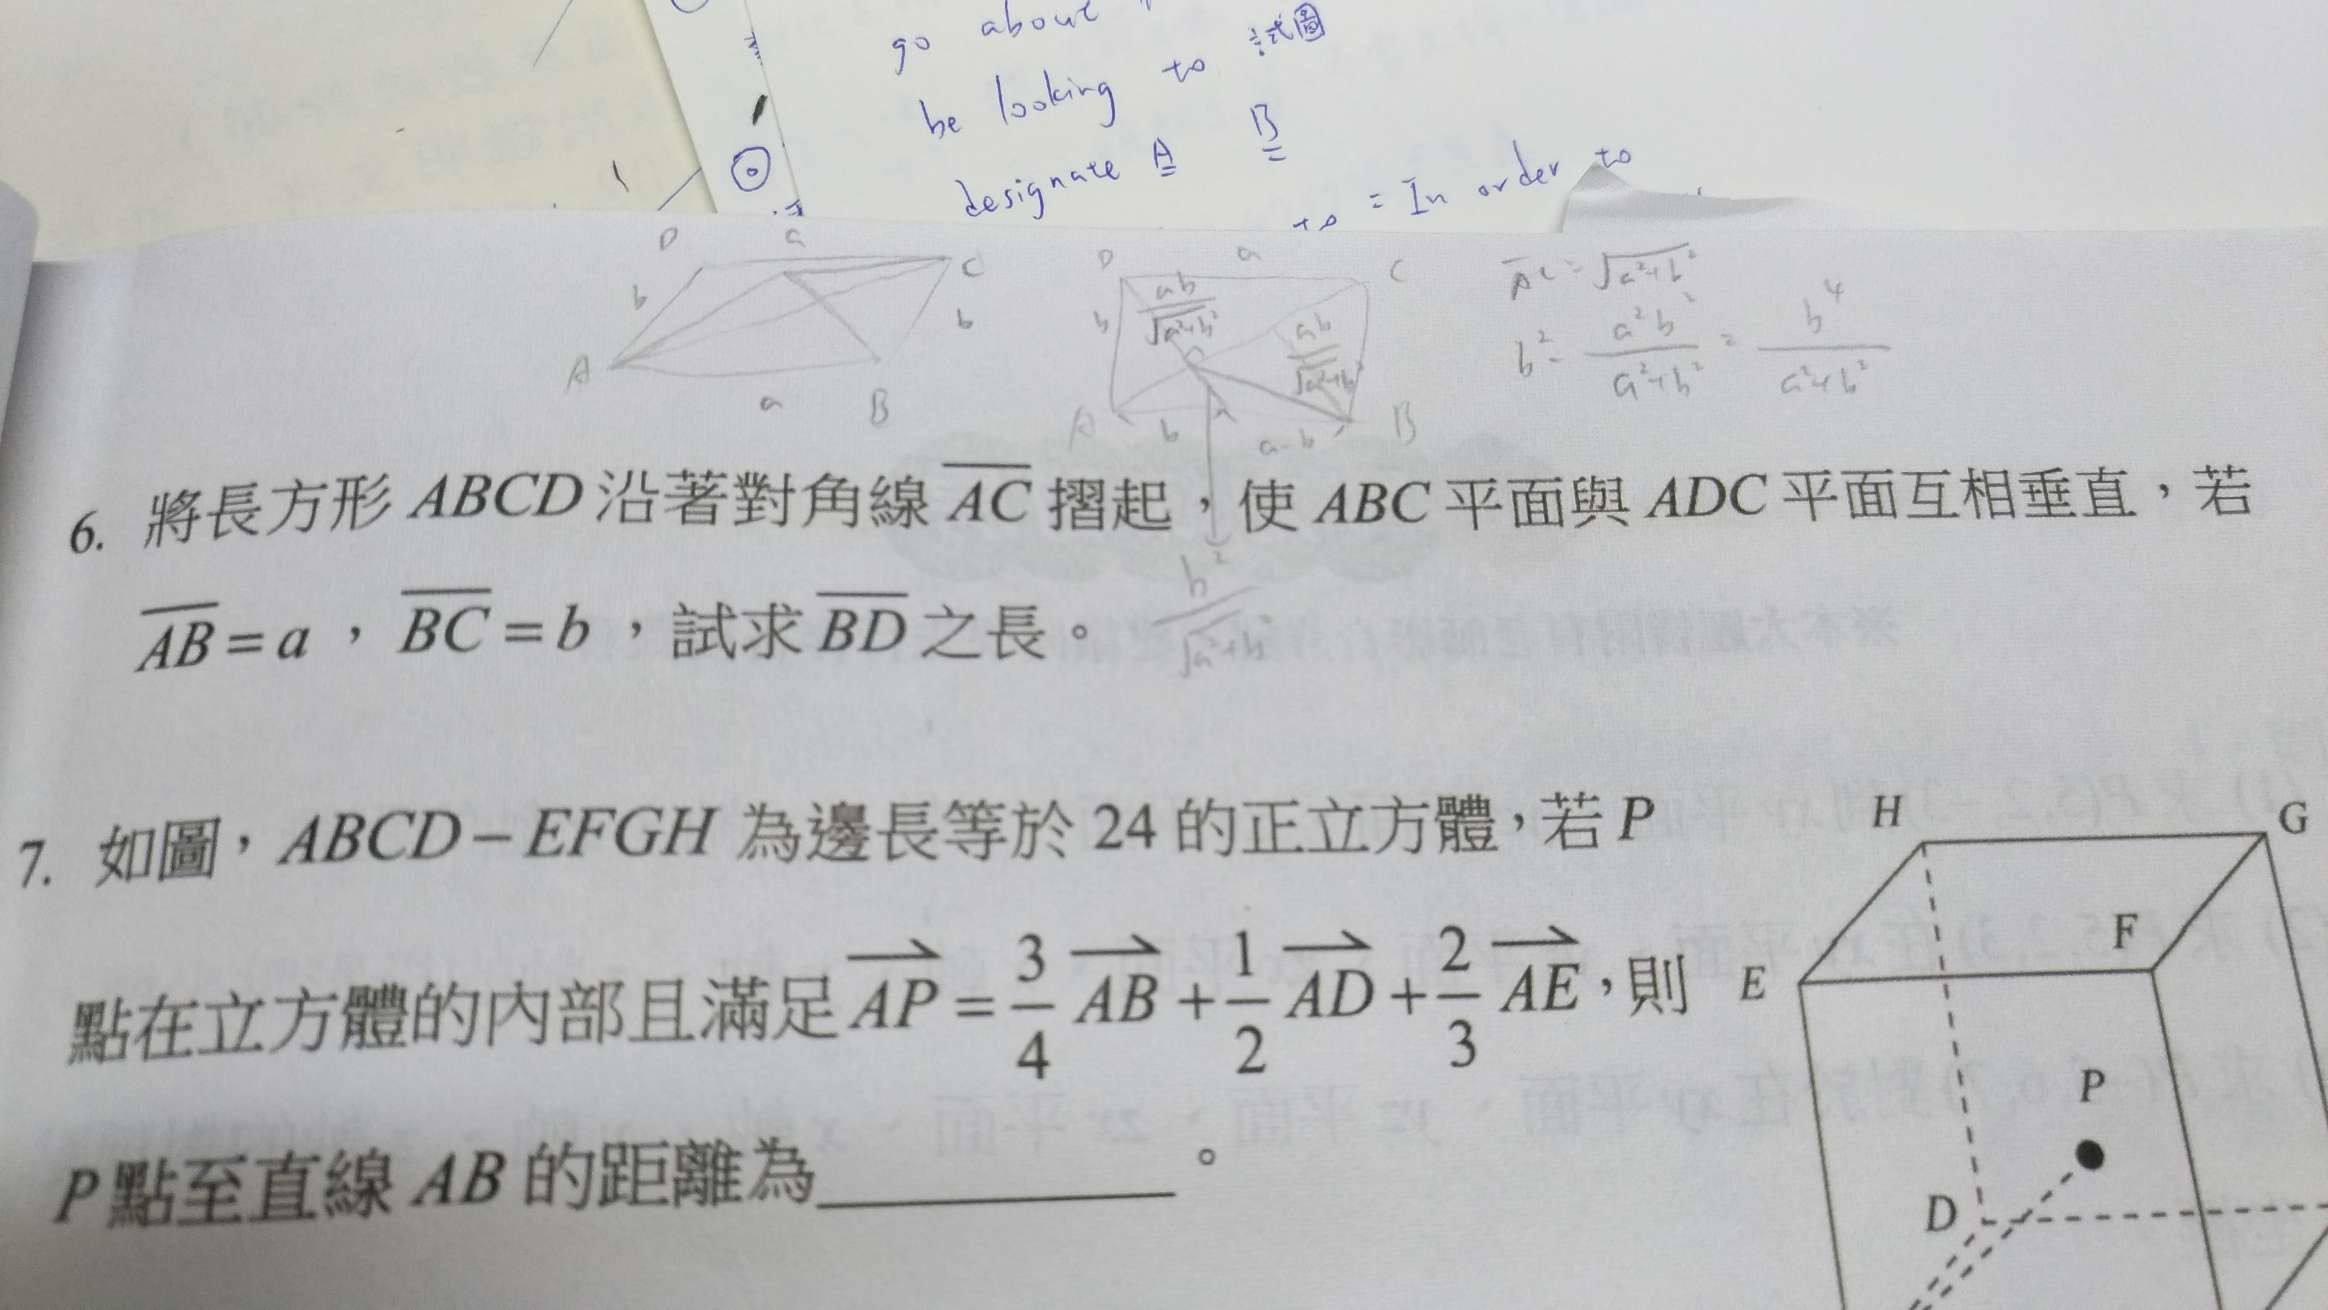 go about
be looking to 試圖
designate A B
to = In order to
D a C
b b
A a B
D a C
b ab/√a²+b² ab/√a²+b²
A b a-b B
b²/√a²+b²
AC = √a²+b²
b² - a²b²/a²+b² = b⁴/a²+b²
6. 將長方形 ABCD 沿著對角線 AC 摺起，使 ABC 平面與 ADC 平面互相垂直，若
AB = a，BC = b，試求 BD 之長。
7. 如圖，ABCD－EFGH 為邊長等於 24 的正立方體，若 P
點在立方體的內部且滿足 AP = 3/4 AB + 1/2 AD + 2/3 AE，則
P 點至直線 AB 的距離為＿＿＿＿＿。
H G
F
E
P
D